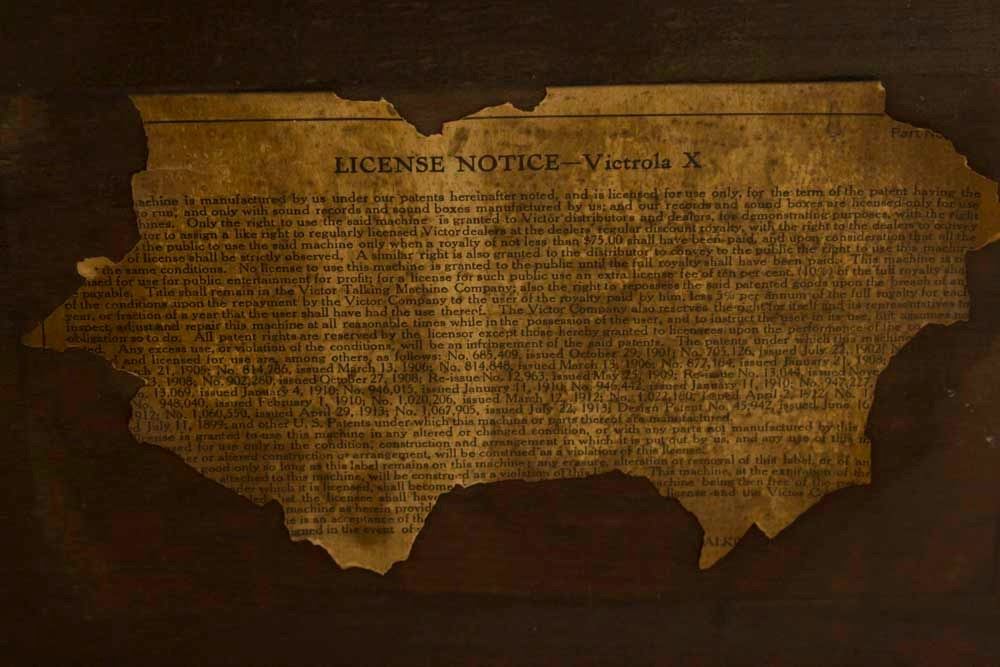 Part No.
LICENSE NOTICE—Victrola X
achine is manufactured by us under our patents hereinafter noted, and is licensed for use only, for the term of the patent having the
o run, and only with sound records and sound boxes manufactured by us; and our records and sound boxes are licensed only for use
hines. Only the right to use the said machine is granted to Victor distributors and dealers, for demonstrating purposes, with the right
utor to assign a like right to regularly licensed Victor dealers at the dealers' regular discount royalty, with the right to the dealers to convey
the public to use the said machine only when a royalty of not less than $75.00 shall have been paid, and upon consideration that all the
license shall be strictly observed. A similar right is also granted to the distributor to convey to the public the right to use this machine
the same conditions. No license to use this machine is granted to the public until the full royalty shall have been paid. This machine is
used for use for public entertainment for profit; for a license for such public use an extra license fee of ten per cent. (10%) of the full royalty
payable. Title shall remain in the Victor Talking Machine Company; also the right to repossess the said patented goods upon the breach of
the conditions upon the repayment by the Victor Company to the user of the royalty paid by him, less 5% per annum of the full royalty for each
year, or fraction of a year that the user shall have had the use thereof. The Victor Company also reserves the right
inspect, adjust and repair this machine at all reasonable times while in the possession of the user, and to instruct the user in its use, but assumes no
obligation so to do. All patent rights are reserved by the licensor except those hereby granted to licensees upon the performance of
Any excess use, or violation of the conditions, will be an infringement of the said patents. The patents under which this machine
and licensed for use are, among others, as follows: No. 685,409, issued October 29, 1901; No. 705,126, issued July 22, 1902;
ch 21, 1905; No. 814,786, issued March 13, 1906; No. 814,848, issued March 13, 1906; No.
1908; No. 902,280, issued October 27, 1908; Re-issue No. 12,963, issued May 25, 1909; No. 13,044, issued Nov
13,069, issued January 4, 1910; No. 946,015, issued January 11, 1910; No. 946,442, issued January 11, 1910; No. 947,227
948,040, issued February 1, 1910; No. 1,020,206, issued March 12, 1912; No. 1,022,160, issued April 2, 1912; No.
912; No. 1,060,550, issued April 29, 1913; No. 1,067,905, issued July 22, 1913; Design Patent No. 45,942, issued June 16
d July 11, 1899; and other U. S. Patents under which this machine or parts thereof are manufactured.
ense is granted to use this machine in any altered or changed condition, or with any parts not manufactured by this
ed for use only in the condition, construction and arrangement in which it is put out by us, and any use of this m
er or altered construction or arrangement, will be construed as a violation of this license.
good only so long as this label remains on this machine; any erasure, alteration or removal of this label, or of an
attached to this machine, will be construed as a violation of this license. This machine, at the expiration of the
under which it is licensed, shall become machine being then free of the
that the licensee shall have license and the Victor C
machine as herein provid
e is an acceptance of th
gned in the event of
ALK